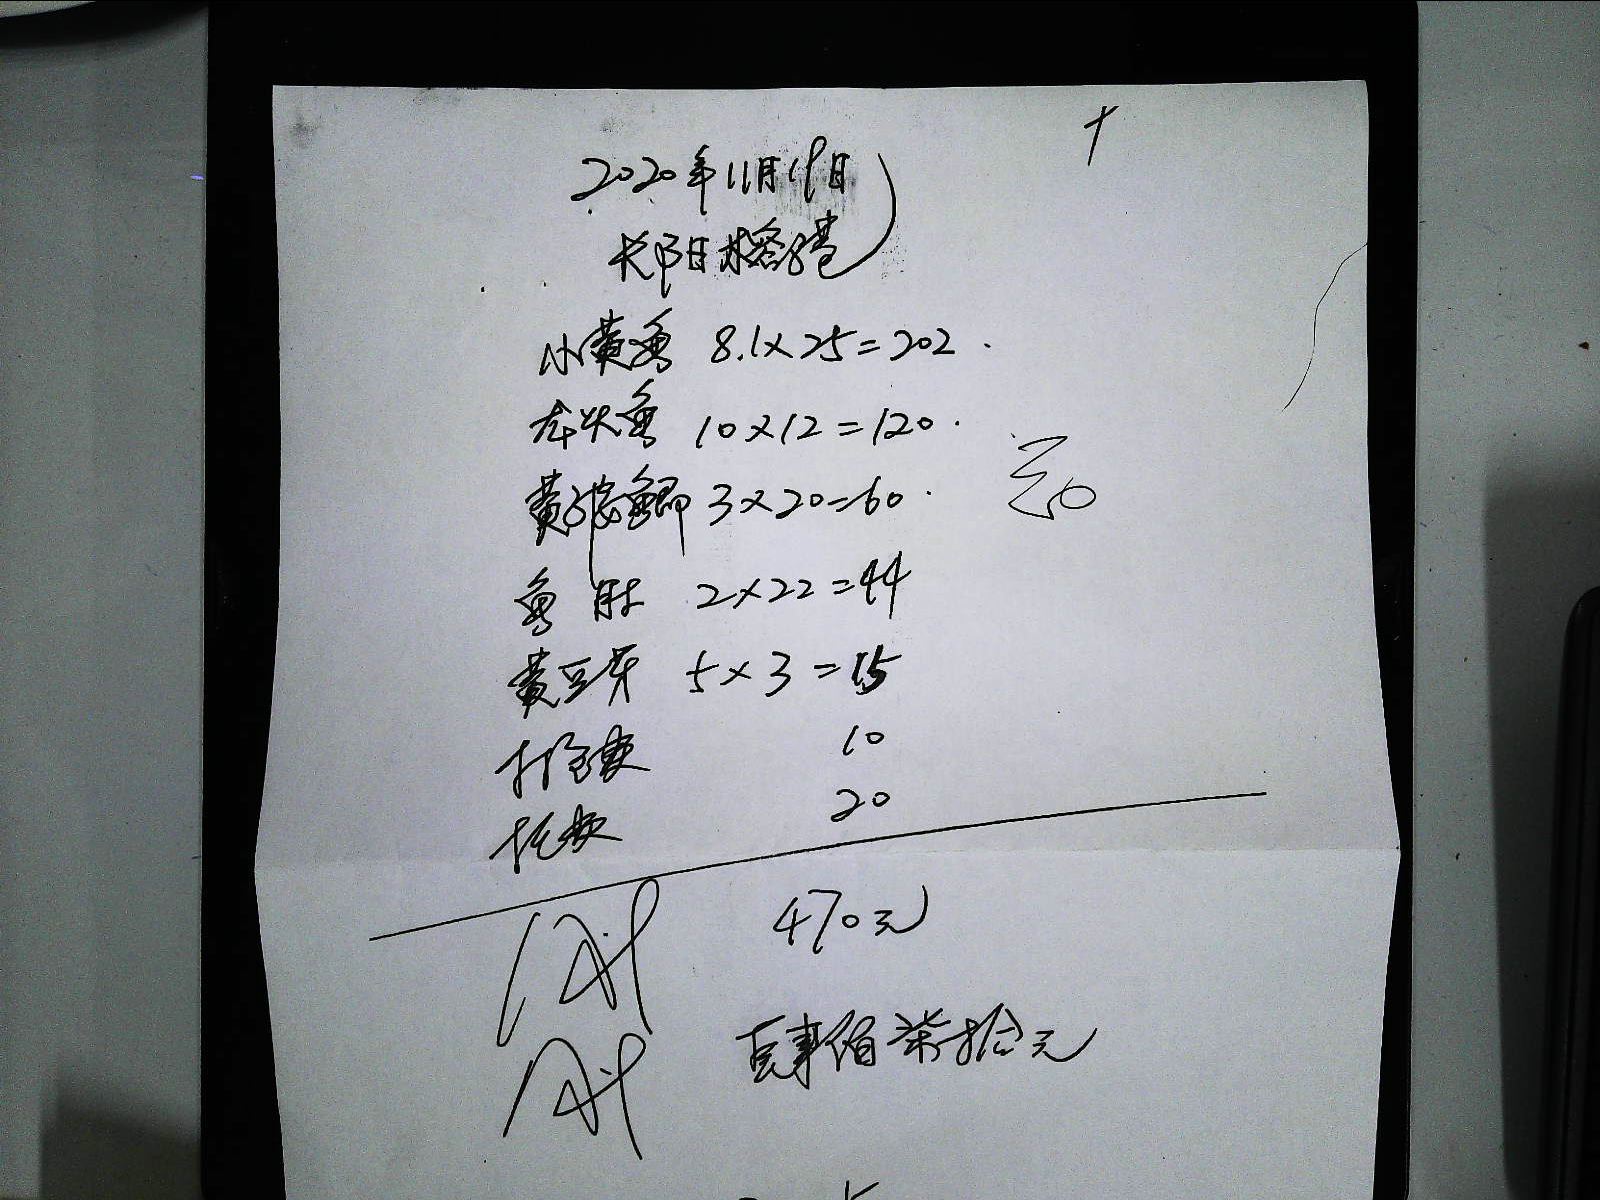 2020年11月19日
长阳榕港
小黄鱼 8.1×25=202
龙头鱼 10×12=120
黄 鲫 3×20=60
鱼肚 2×22=44
黄豆芽 5×3=15
打包费 10
托费 20
470元
肆佰柒拾元